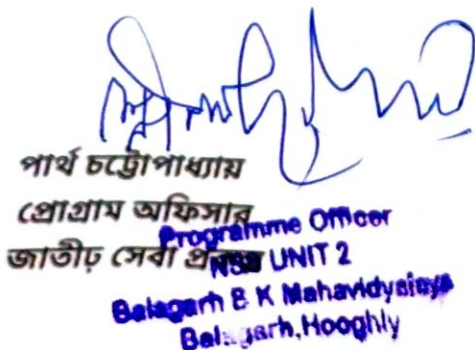 পার্থ চট্টোপাধ্যায়
প্রোগ্রাম অফিসার
জাতীয় সেবা
Programme Officer
NSS UNIT 2
Balagarh B K Mahavidyalaya
Balagarh, Hooghly